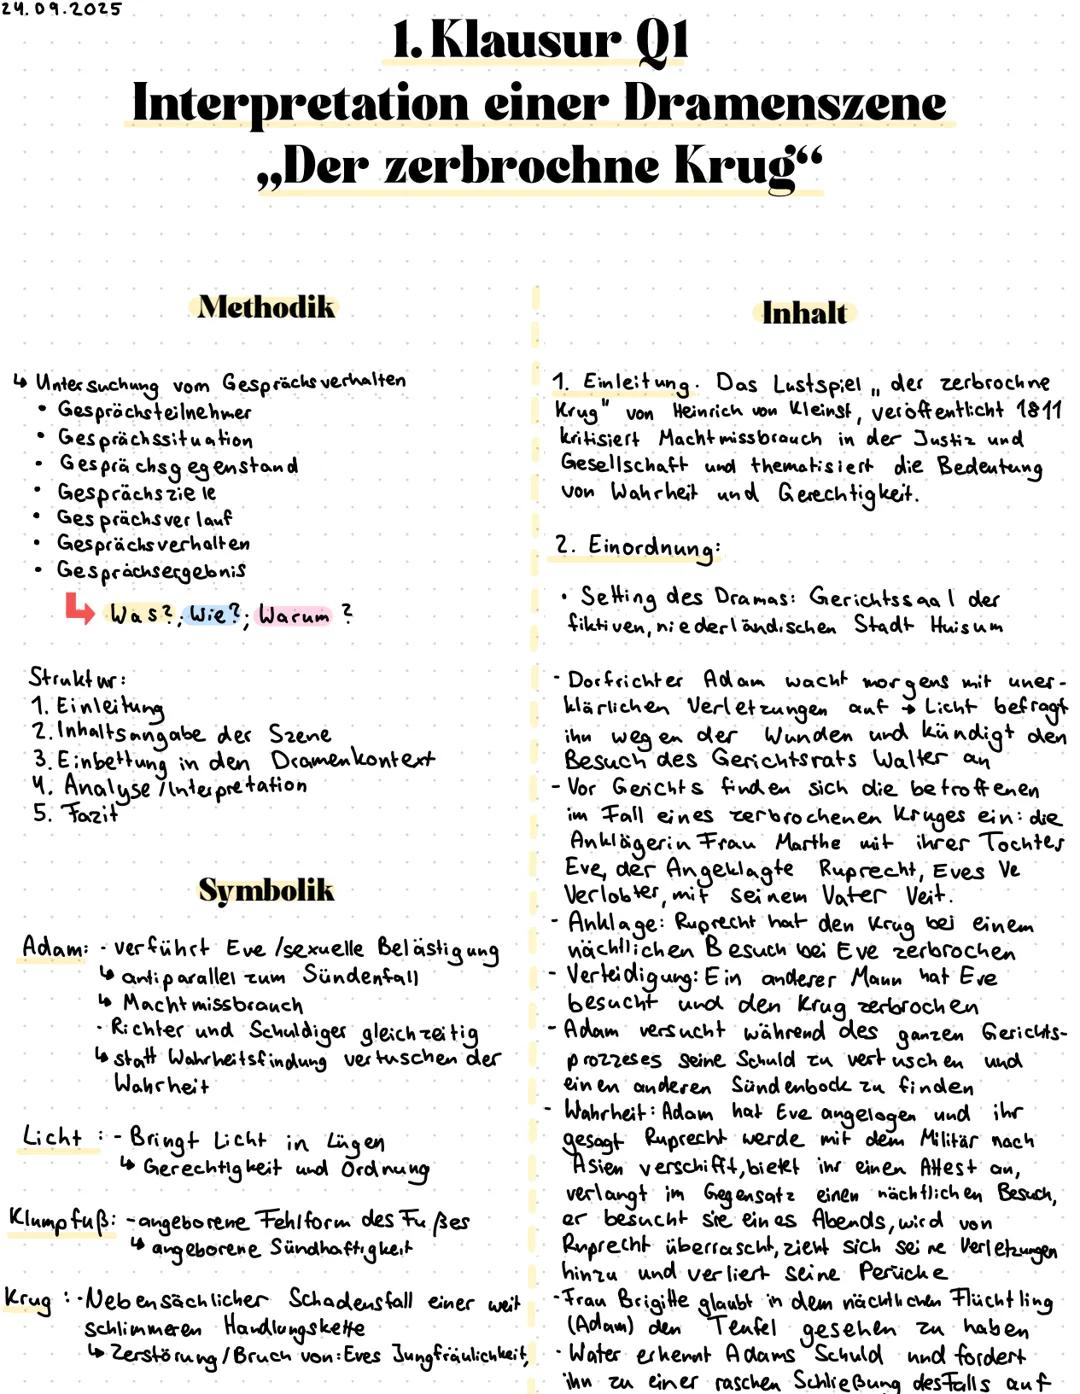 24.09.2025
1. Klausur Q1
Interpretation einer Dramenszene
„Der zerbrochne Krug“
Methodik
↳ Untersuchung vom Gesprächsverhalten
• Gesprächsteilnehmer
• Gesprächssituation
• Gesprächsgegenstand
• Gesprächsziele
• Gesprächsverlauf
• Gesprächsverhalten
• Gesprächsergebnis
↳ Was?; Wie?; Warum?
Struktur:
1. Einleitung
2. Inhaltsangabe der Szene
3. Einbettung in den Dramenkontext
4. Analyse/Interpretation
5. Fazit
Symbolik
Adam: - verführt Eve /sexuelle Belästigung
↳ antiparallel zum Sündenfall
↳ Machtmissbrauch
- Richter und Schuldiger gleichzeitig
↳ statt Wahrheitsfindung vertuschen der
Wahrheit
Licht : - Bringt Licht in Lügen
↳ Gerechtigkeit und Ordnung
Klumpfuß: - angeborene Fehlform des Fußes
↳ angeborene Sündhaftigkeit
Krug : - Nebensächlicher Schadensfall einer weit
schlimmeren Handlungskette
↳ Zerstörung/Bruch von: Eves Jungfräulichkeit,
Inhalt
1. Einleitung. Das Lustspiel „ der zerbrochne
Krug" von Heinrich von Kleinst, veröffentlicht 1811
kritisiert Machtmissbrauch in der Justiz und
Gesellschaft und thematisiert die Bedeutung
von Wahrheit und Gerechtigkeit.
2. Einordnung:
• Setting des Dramas: Gerichtssaal der
fiktiven, niederländischen Stadt Huisum
- Dorfrichter Adam wacht morgens mit uner-
klärlichen Verletzungen auf → Licht befragt
ihn wegen der Wunden und kündigt den
Besuch des Gerichtsrats Walter an
- Vor Gerichts finden sich die betroffenen
im Fall eines zerbrochenen Kruges ein: die
Anklägerin Frau Marthe mit ihrer Tochter
Eve, der Angeklagte Ruprecht, Eves Ve
Verlobter, mit seinem Vater Veit.
- Anklage: Ruprecht hat den Krug bei einem
nächtlichen Besuch bei Eve zerbrochen
- Verteidigung: Ein anderer Mann hat Eve
besucht und den Krug zerbrochen
- Adam versucht während des ganzen Gerichts-
prozzeses seine Schuld zu vertuschen und
einen anderen Sündenbock zu finden
- Wahrheit: Adam hat Eve angelogen und ihr
gesagt Ruprecht werde mit dem Militär nach
Asien verschifft, bietet ihr einen Attest an,
verlangt im Gegensatz einen nächtlichen Besuch,
er besucht sie eines Abends, wird von
Ruprecht überrascht, zieht sich seine Verletzungen
hinzu und verliert seine Perücke
- Frau Brigitte glaubt in dem nächtlichen Flüchtling
(Adam) den Teufel gesehen zu haben
- Walter erkennt Adams Schuld und fordert
ihn zu einer raschen Schließung des Falls auf